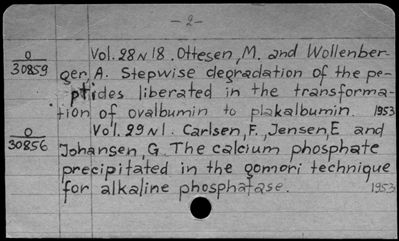 - 2 -
0 Vol. 28 N 18. Ottesen, M. and Wollenber-
30859 ger, A. Stepwise degradation of the pe-
ptides liberated in the transforma-
tion of ovalbumin to plakalbumin. 1953
0 Vol. 29 N 1. Carlsen, F., Jensen, E and
30856 Johansen, G. The calcium phosphate
precipitated in the gomori technique
for alkaline phosphatase. 1953